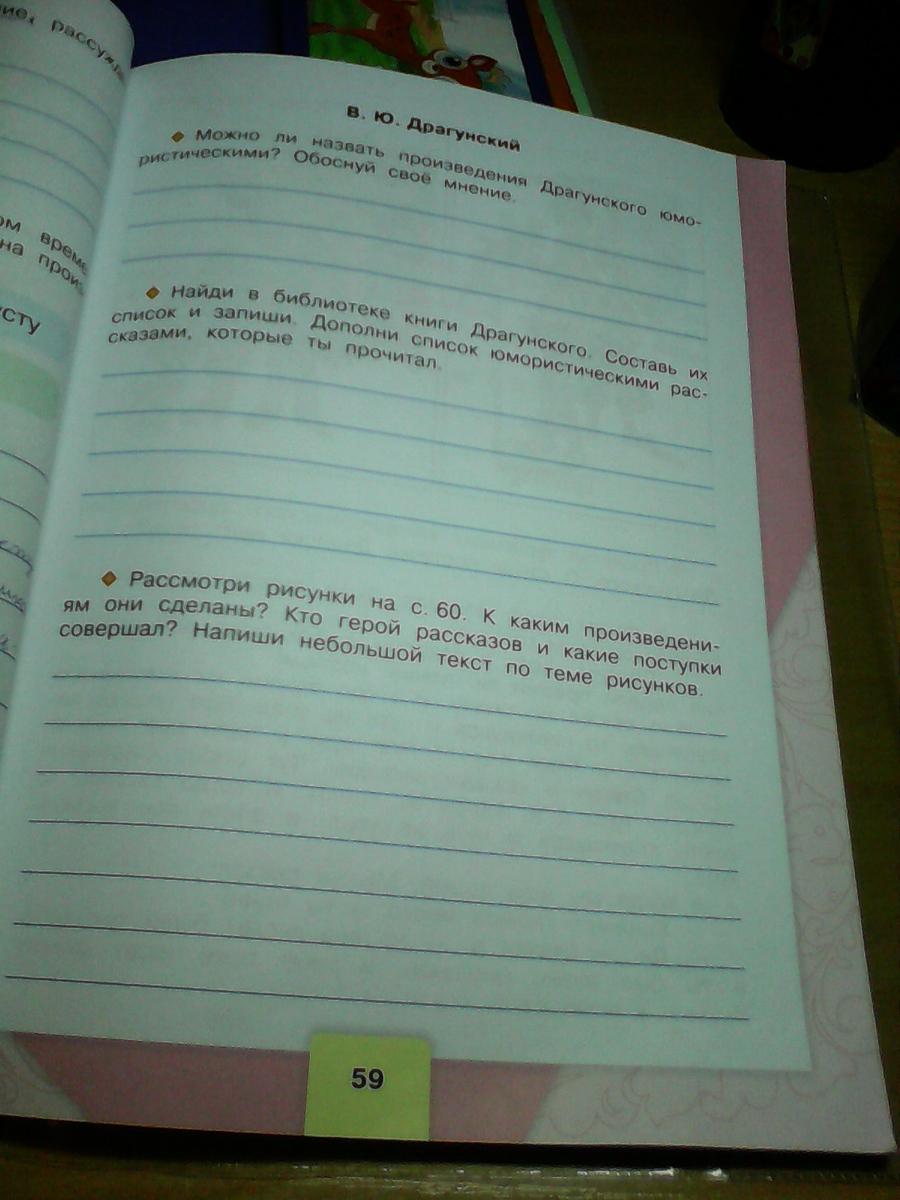 ние, рассуж
ом време
на произ
усту
В. Ю. Драгунский
Можно ли назвать произведения Драгунского юмо-
ристическими? Обоснуй своё мнение.
Найди в библиотеке книги Драгунского. Составь их
список и запиши. Дополни список юмористическими рас-
сказами, которые ты прочитал.
Рассмотри рисунки на с. 60. К каким произведени-
ям они сделаны? Кто герой рассказов и какие поступки
совершал? Напиши небольшой текст по теме рисунков.
59